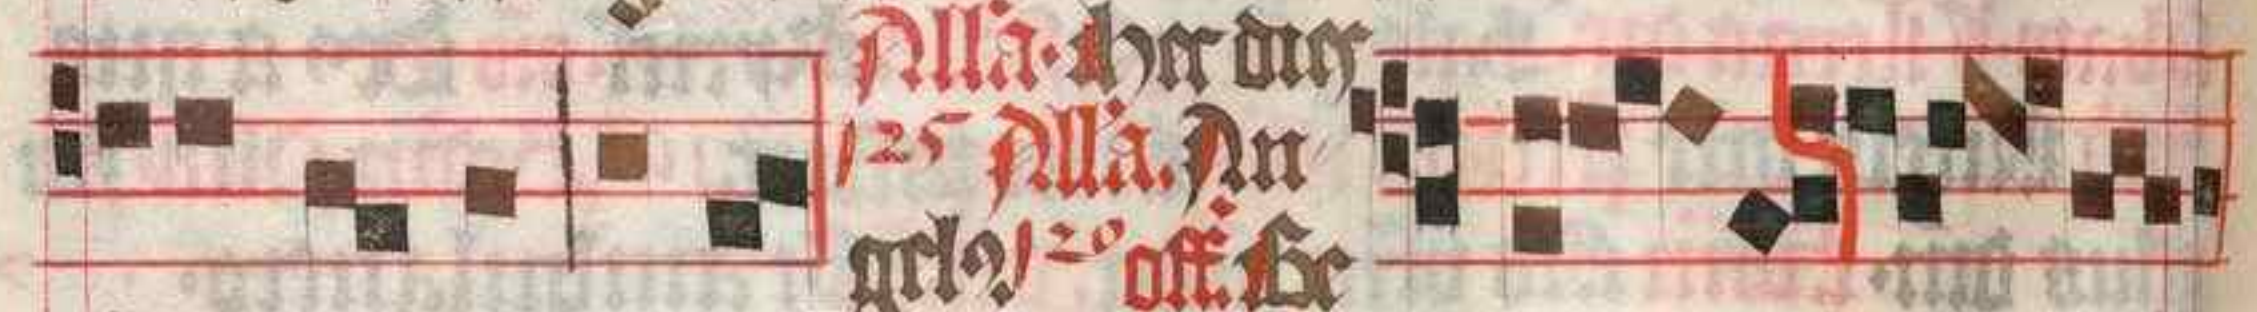 Alla. Hec dies
125 Alla. An
gel9 120 off. Be